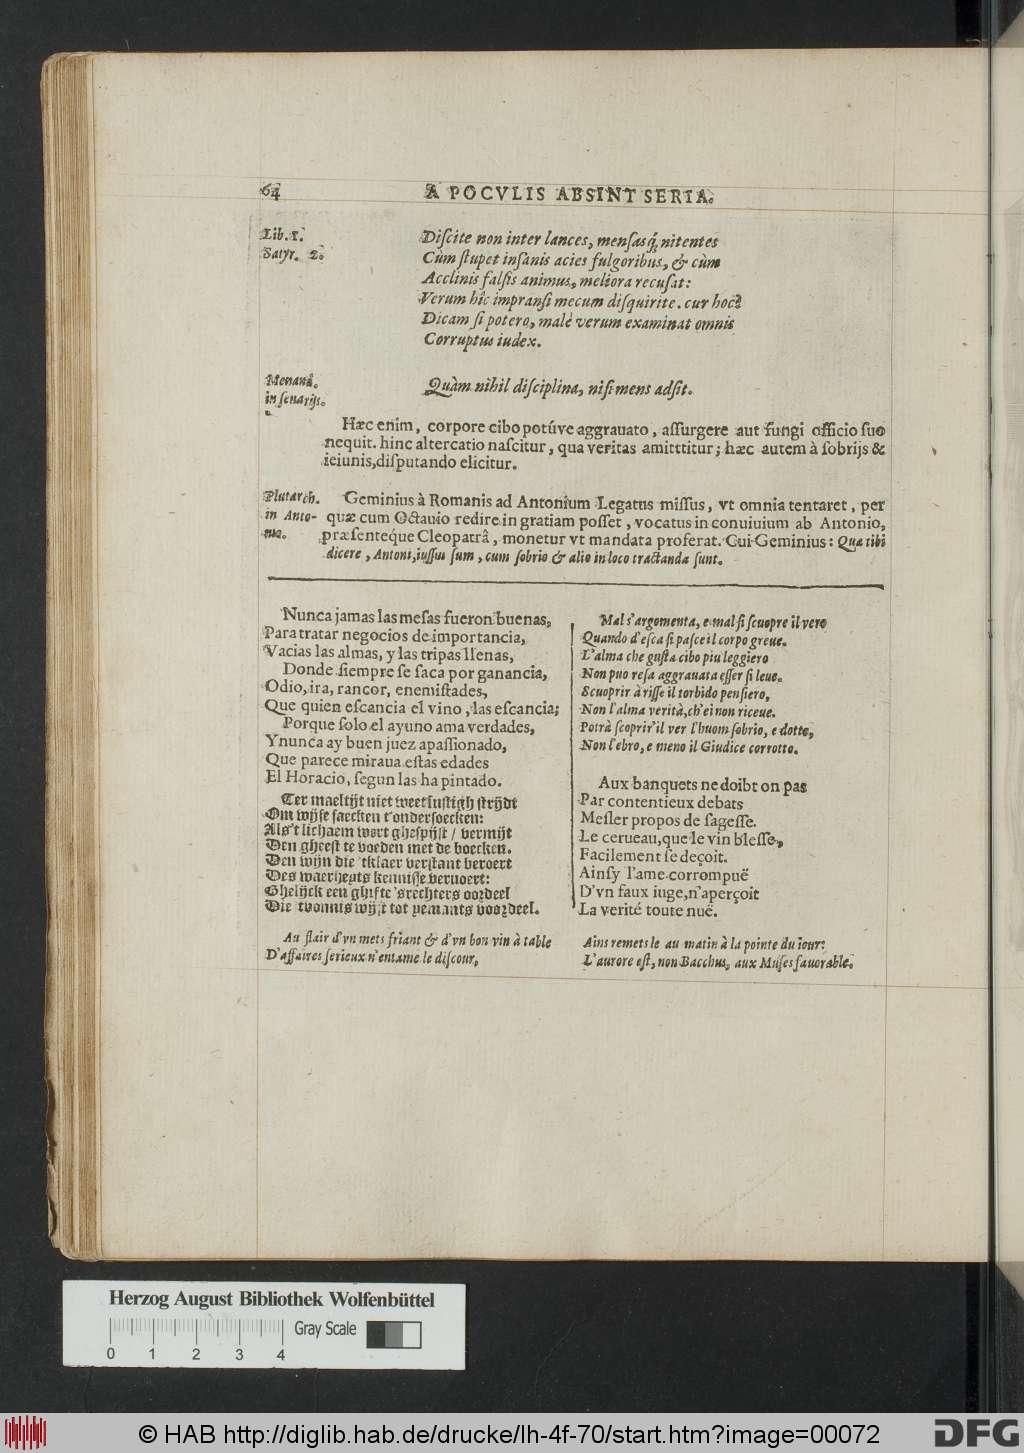 64
A POCVLIS ABSINT SERIA.
Lib. 1.
Satyr. 2.
Diſcite non inter lances, menſasq́; nitentes
Cùm ſtupet inſanis acies fulgoribus, & cùm
Acclinis falſis animus, meliora recuſat:
Verum hîc impranſi mecum diſquirite. cur hoc?
Dicam ſi potero, malè verum examinat omnis
Corruptus iudex.
Menand.
in ſenarijs.
Quàm nihil diſciplina, niſi mens adſit.
Hæc enim, corpore cibo potúve aggrauato, aſſurgere aut fungi officio ſuo
nequit. hinc altercatio naſcitur, qua veritas amitttitur; hæc autem à ſobrijs &
ieiunis, diſputando elicitur.
Plutarch.
in Anto-
nio.
Geminius à Romanis ad Antonium Legatus miſſus, vt omnia tentaret, per
quæ cum Octauio redire in gratiam poſſet, vocatus in conuiuium ab Antonio,
præſenteque Cleopatrâ, monetur vt mandata proferat. Cui Geminius: Quæ tibi
dicere, Antoni, iuſſus ſum, cum ſobrio & alio in loco tractanda ſunt.
Nunca jamas las meſas fueron buenas,
Para tratar negocios de importancia,
Vacias las almas, y las tripas llenas,
Donde ſiempre ſe ſaca por ganancia,
Odio, ira, rancor, enemiſtades,
Que quien eſcancia el vino, las eſcancia;
Porque ſolo el ayuno ama verdades,
Y nunca ay buen juez apaſſionado,
Que parece miraua eſtas edades
El Horacio, ſegun las ha pintado.
Ter maeltijt niet weet luſtigh ſtrijdt
Om wijſe ſaecken t'onderſoecken:
Als't lichaem wort gheſpijſt / vermijt
Den gheeſt te voeden met de boecken.
Den wijn die 'tklaer verſtant beroert
Des waerheyts kenniſſe vervoert:
Ghelijck een ghifte 'srechters oordeel
Die tvonnis wijſt tot yemants voordeel.
Au flair d'vn mets friant & d'vn bon vin à table
D'affaires ſerieux n'entame le diſcour,
Mal s'argomenta, e mal ſi ſcuopre il vero
Quando d'eſca ſi paſce il corpo greue.
L'alma che guſta cibo piu leggiero
Non puo reſa aggrauata eſſer ſi leue.
Scuoprir à riſſe il torbido penſiero,
Non l'alma verità, ch'ei non riceue.
Potrà ſcoprir'il ver l'huom ſobrio, e dotto,
Non l'ebro, e meno il Giudice corrotto.
Aux banquets ne doibt on pas
Par contentieux debats
Meſler propos de ſageſſe.
Le cerueau, que le vin bleſſe,
Facilement ſe deçoit.
Ainſy l'ame corrompuë
D'vn faux iuge, n'aperçoit
La verité toute nuë.
Ains remets le au matin à la pointe du iour:
L'aurore eſt, non Bacchus, aux Muſes fauorable.
Herzog August Bibliothek Wolfenbüttel
0 1 2 3 4
Gray Scale
© HAB http://diglib.hab.de/drucke/lh-4f-70/start.htm?image=00072
DFG